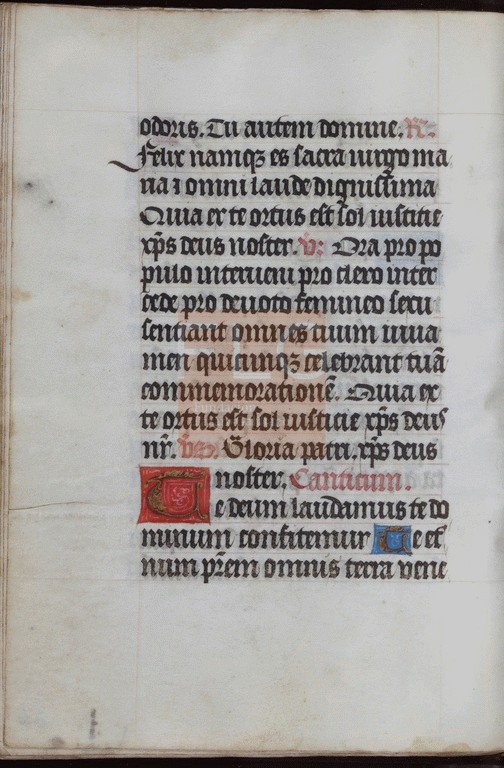 odoris. Tu autem domine. R̃:
Felix namqꝫ es sacra uirgo ma
ria ⁊ omni laude dignissima
Quia ex te ortus est sol iusticie
xp̃s deus noster. v̓: Ora pro po
pulo interueni pro clero inter
cede pro deuoto femineo sexu
sentiant omnes tuum iuua
men quicunqꝫ celebrant tuã
commemorationẽ. Quia ex
te ortus est sol iusticie xp̃s deus
nr̃. Gloria patri. xp̃s deus
noster. Canticum.
Te deum laudamus te do
minum confitemur Te et̾
num pr̃em omnis terra vene